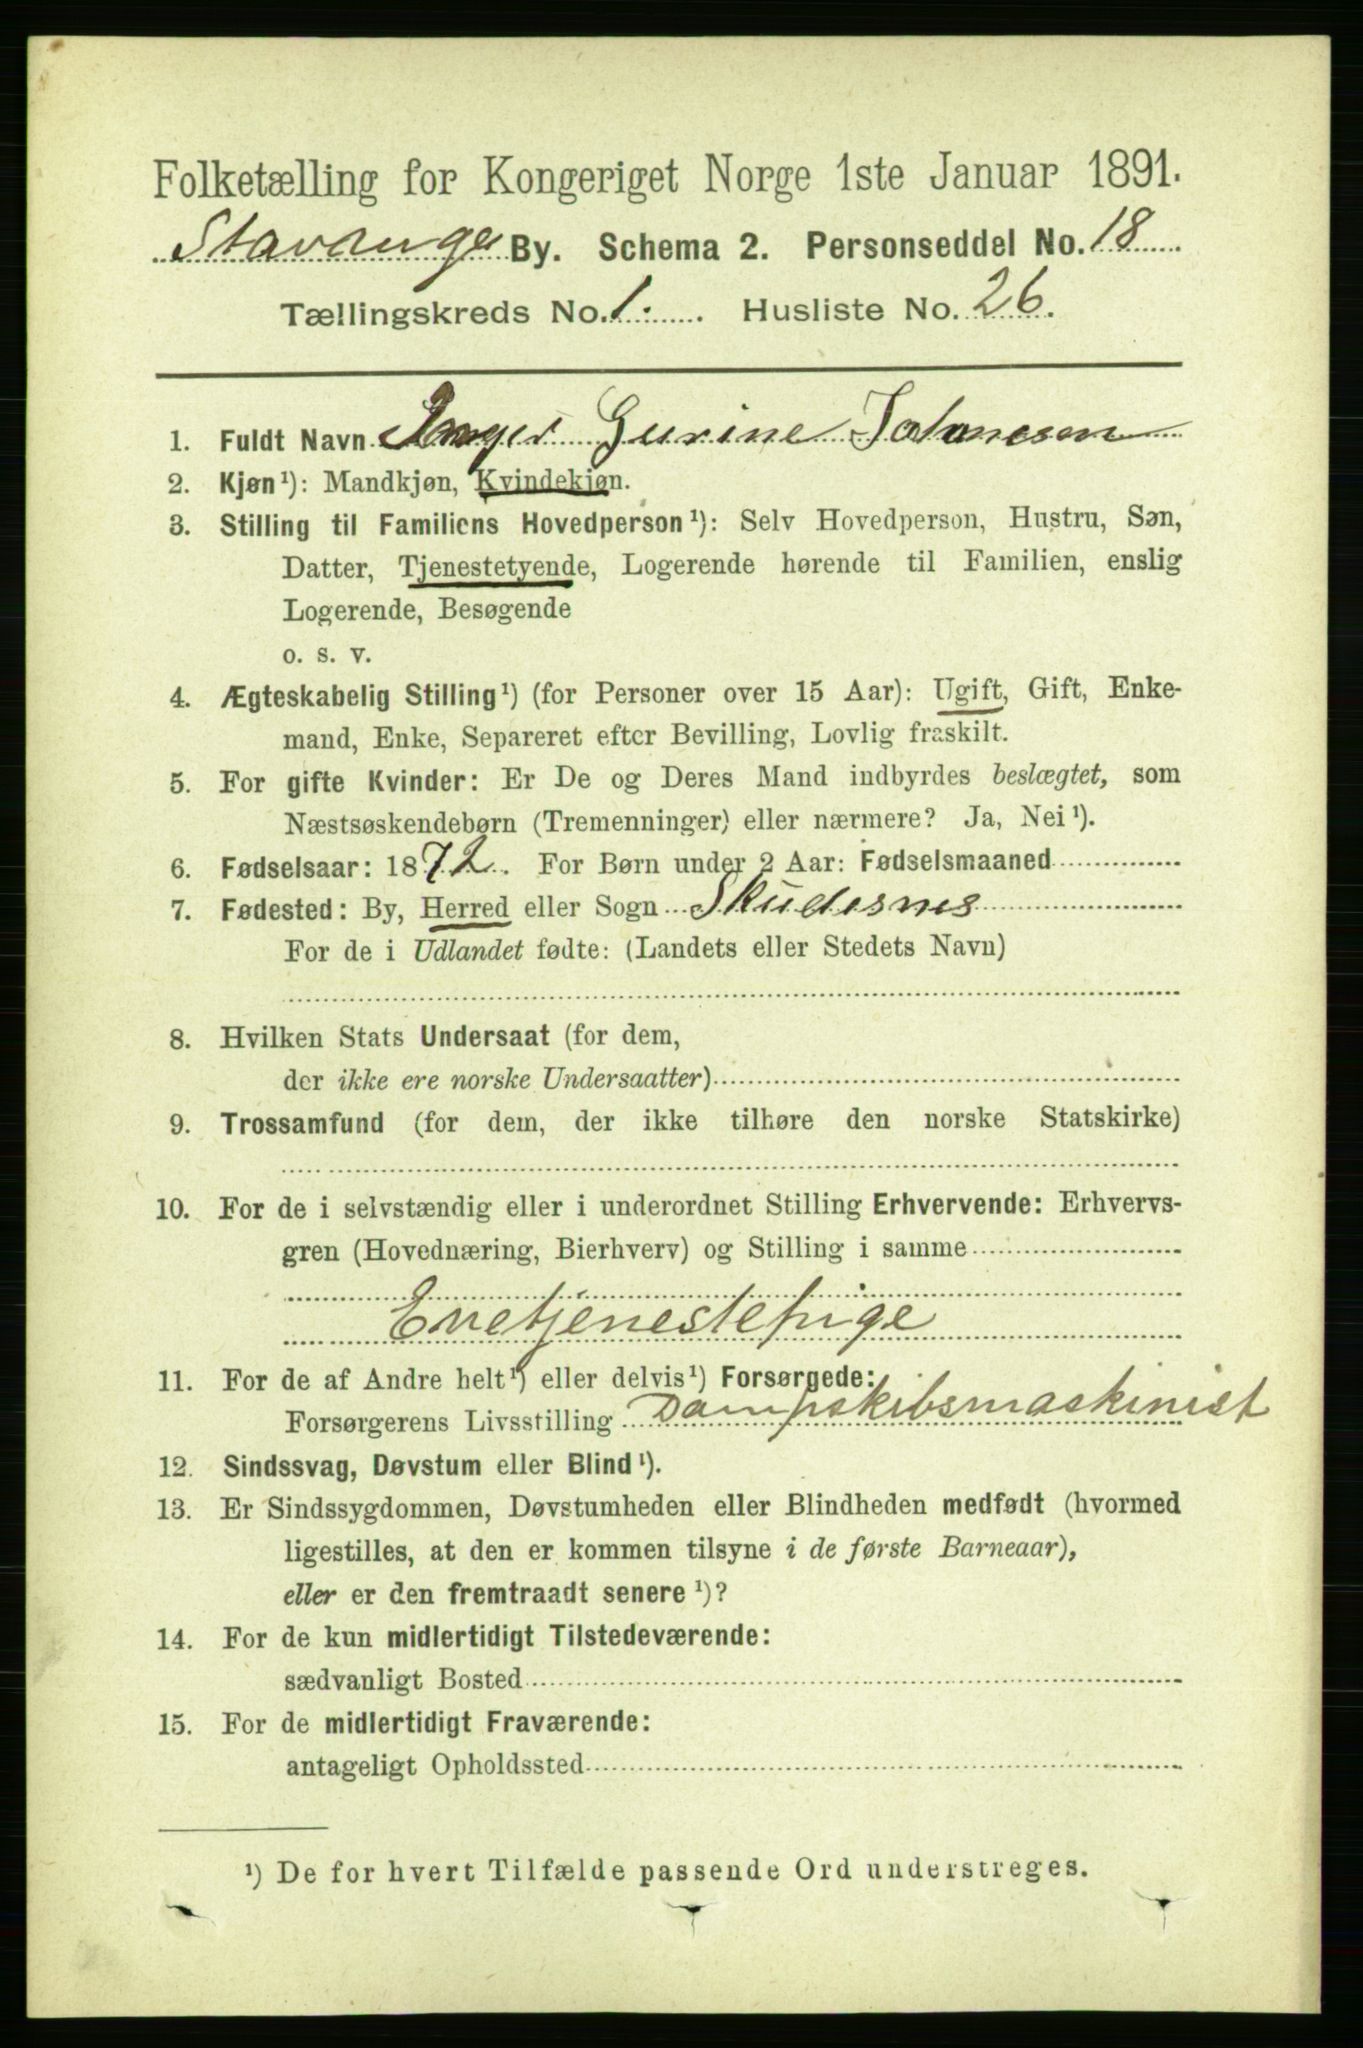 Folketælling for Kongeriget Norge 1ste Januar 1891.
Stavanger By. Schema 2. Personseddel No. 18
Tællingskreds No. 1. Husliste No. 26.
1. Fuldt Navn Inger Gurine Johnnesen
2. Kjøn¹): Mandkjøn, Kvindekjøn.
3. Stilling til Familiens Hovedperson¹): Selv Hovedperson, Hustru, Søn,
Datter, Tjenestetyende, Logerende hørende til Familien, enslig
Logerende, Besøgende
o. s. v.
4. Ægteskabelig Stilling¹) (for Personer over 15 Aar): Ugift, Gift, Enke-
mand, Enke, Separeret efter Bevilling, Lovlig fraskilt.
5. For gifte Kvinder: Er De og Deres Mand indbyrdes beslægtet, som
Næstsøskendebørn (Tremenninger) eller nærmere? Ja, Nei¹).
6. Fødselsaar: 1872. For Børn under 2 Aar: Fødselsmaaned
7. Fødested: By, Herred eller Sogn Skudesnes
For de i Udlandet fødte: (Landets eller Stedets Navn)
8. Hvilken Stats Undersaat (for dem,
der ikke ere norske Undersaatter)
9. Trossamfund (for dem, der ikke tilhøre den norske Statskirke)
10. For de i selvstændig eller i underordnet Stilling Erhvervende: Erhvervs-
gren (Hovednæring, Bierhverv) og Stilling i samme
Enetjenestepige
11. For de af Andre helt¹) eller delvis¹) Forsørgede:
Forsørgerens Livsstilling Dampskibsmaskinist
12. Sindssvag, Døvstum eller Blind¹).
13. Er Sindssygdommen, Døvstumheden eller Blindheden medfødt (hvormed
ligestilles, at den er kommen tilsyne i de første Barneaar),
eller er den fremtraadt senere¹)?
14. For de kun midlertidigt Tilstedeværende:
sædvanligt Bosted
15. For de midlertidigt Fraværende:
antageligt Opholdssted
¹) De for hvert Tilfælde passende Ord understreges.